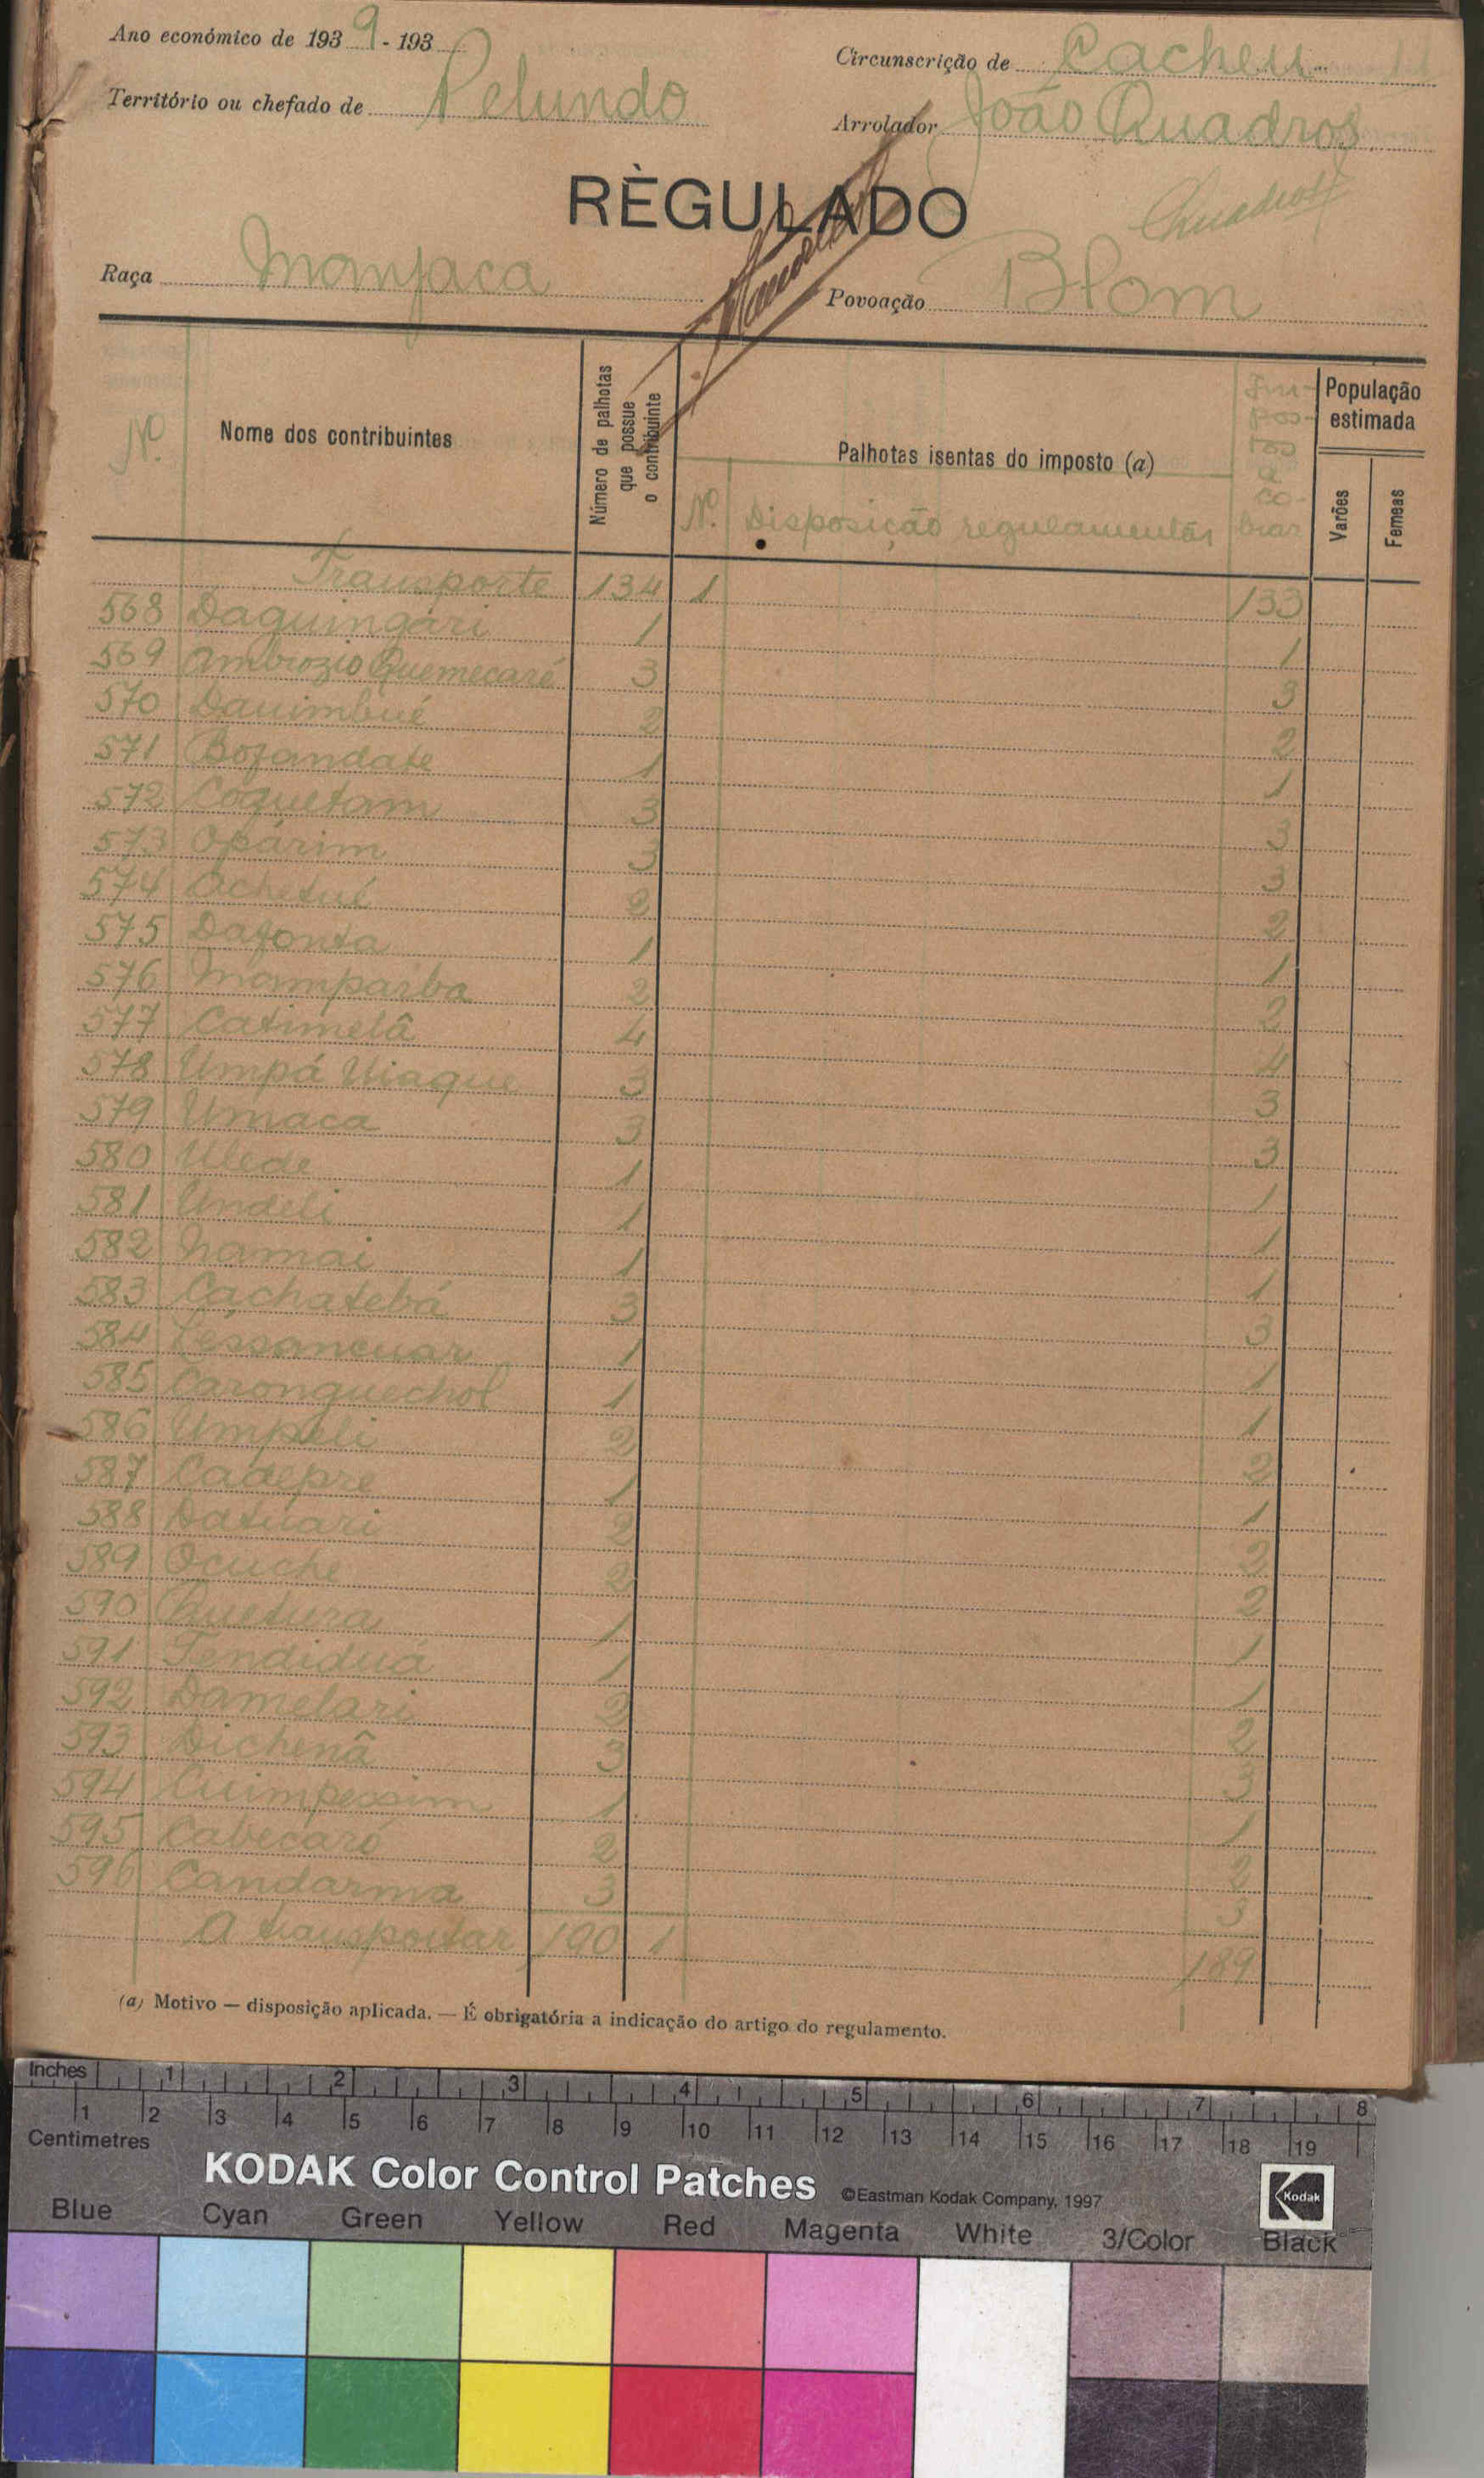 Ano económico de 1939-193
Circunscrição de Cacheu
Território ou chefado de Pelundo
Arrolador João Quadros
RÈGULADO
Quadros
Raça Manjaca
Povoação Blom
Nº Nome dos contribuintes Número de palhotas que possue o contribuinte Palhotas isentas do imposto (a) Impostos a cobrar População estimada
Nº. Disposição regulamentar Varões Femeas
Transporte 134 1 133
568 Daquingári 1 1
569 Ambrozio Quemecaré 3 3
570 Dauimbué 2 2
571 Bofandate 1 1
572 Coquetam 3 3
573 Opárim 3 3
574 Achetué 2 2
575 Dafonta 1 1
576 Mamparba 2 2
577 Catimelâ 4 4
578 Umpá Uiaque 3 3
579 Umaca 3 3
580 Ulede 1 1
581 Undeli 1 1
582 Namai 1 1
583 Cachatebá 3 3
584 Lessancuar 1 1
585 Caronguechol 1 1
586 Umpeli 2 2
587 Cadepre 1 1
588 Datuari 2 2
589 Ocuche 2 2
590 Quetura 1 1
591 Tendiduá 1 1
592 Damelari 2 2
593 Dichenâ 3 3
594 Cuimpessim 1 1
595 Cabecaró 2 2
596 Candarma 3 3
A transportar 190 1 189
(a) Motivo — disposição aplicada. — É obrigatória a indicação do artigo do regulamento.
Inches 1 2 3 4 5 6 7 8
1 2 3 4 5 6 7 8 9 10 11 12 13 14 15 16 17 18 19
Centimetres
KODAK Color Control Patches ©Eastman Kodak Company, 1997 Kodak
Blue Cyan Green Yellow Red Magenta White 3/Color Black